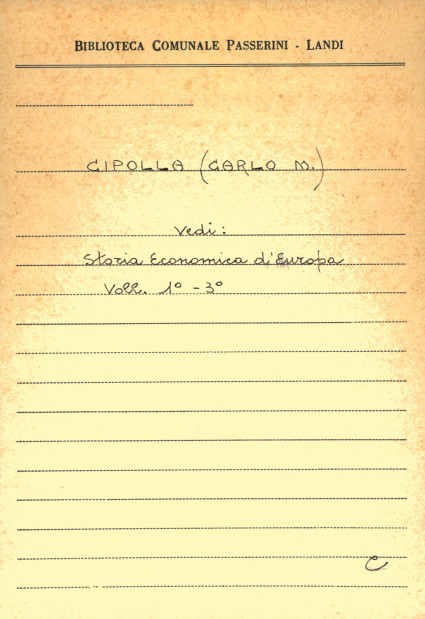 BIBLIOTECA COMUNALE PASSERINI - LANDI
CIPOLLA (CARLO M.)
Vedi:
Storia Economica d'Europa
Voll. 1º - 3º
C